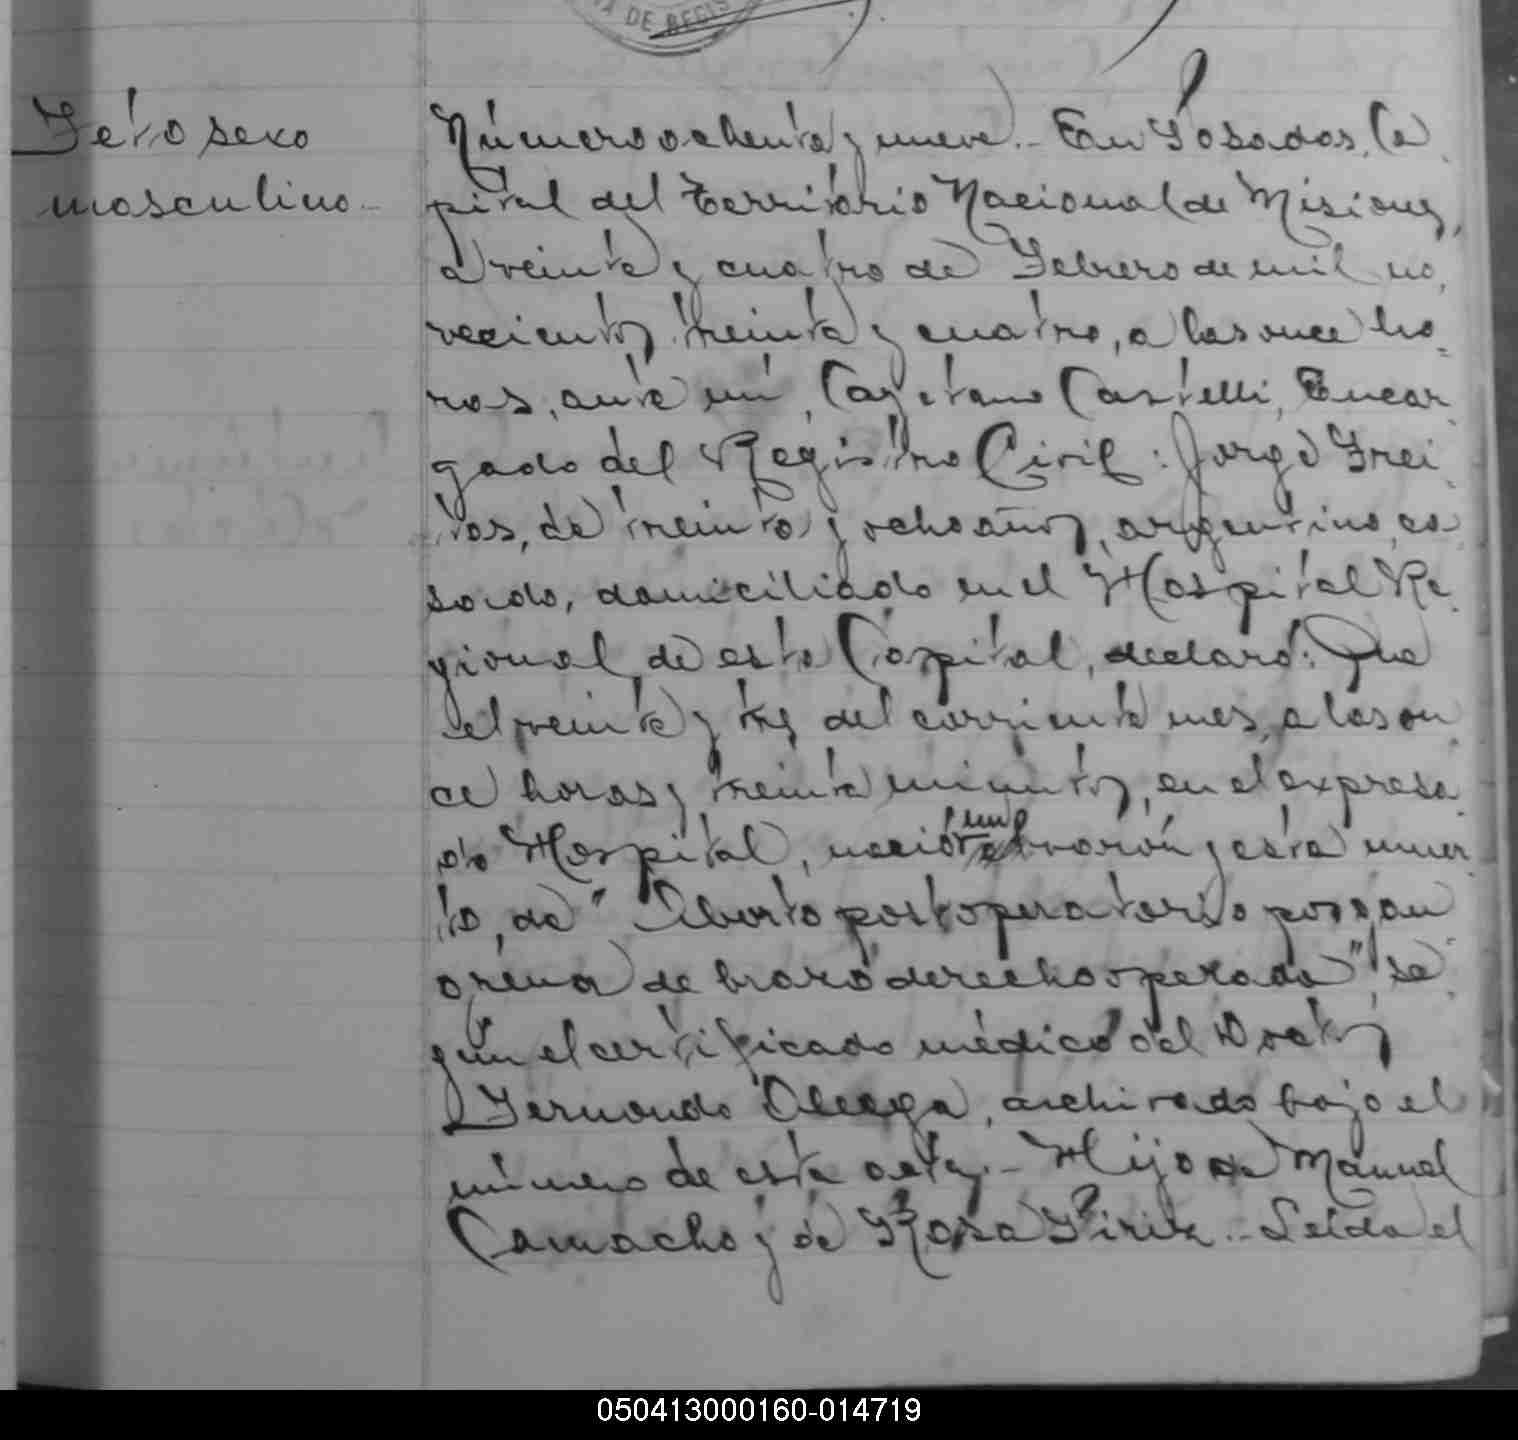 A DE REGIS
Feto sexo
masculino
Número ochenta y nueve.- En Posadas, Ca
pital del Territorio Nacional de Misiones,
a veinte y cuatro de Febrero de mil no
vecientos treinta y cuatro, a las once ho
ras, ante mí, Cayetano Castelli, Encar
gado del Registro Civil: Jorge Frei
tas, de treinta y ocho años, argentino, ca
sado, domiciliado en el Hospital Re
gional de esta Capital, declaró: Que
el veinte y tres del corriente mes, a las on
ce horas y treinta minutos, en el expresa
do Hospital, nació un varón y está muer
to, de "Aborto postoperatorio por gan
grena de brazo derecho operada", se
gún el certificado médico del Doctor
Fernando, archivado bajo el
número de esta acta.- Hijo de Manuel
Camacho y de Rosa Piriz.- Leída el
050413000160-014719